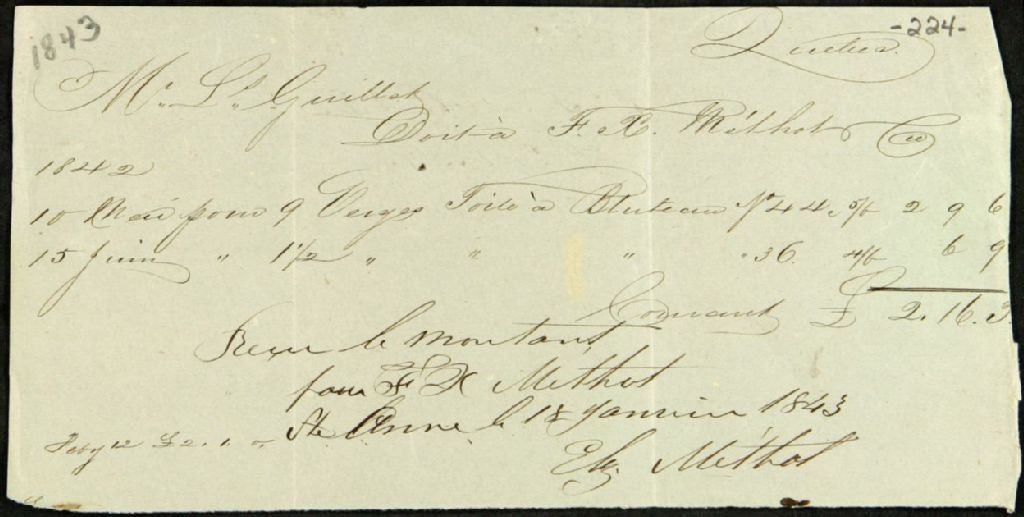 1843
-224-
Québec
Mr. Ls. Guillet
Doit à F. X. Méthot & Co
1842
10 Mai pour 9 Verges Toile à Bluteau No 44. 5/6 2 9 6
15 Juin " 1 1/2 " " " " 36. 4/6 6 9
Courant £ 2. 16. 3
Reçu le montant
pour F X Méthot
Ste Anne le 18 Janvier 1843
£2. 1.
Méthot